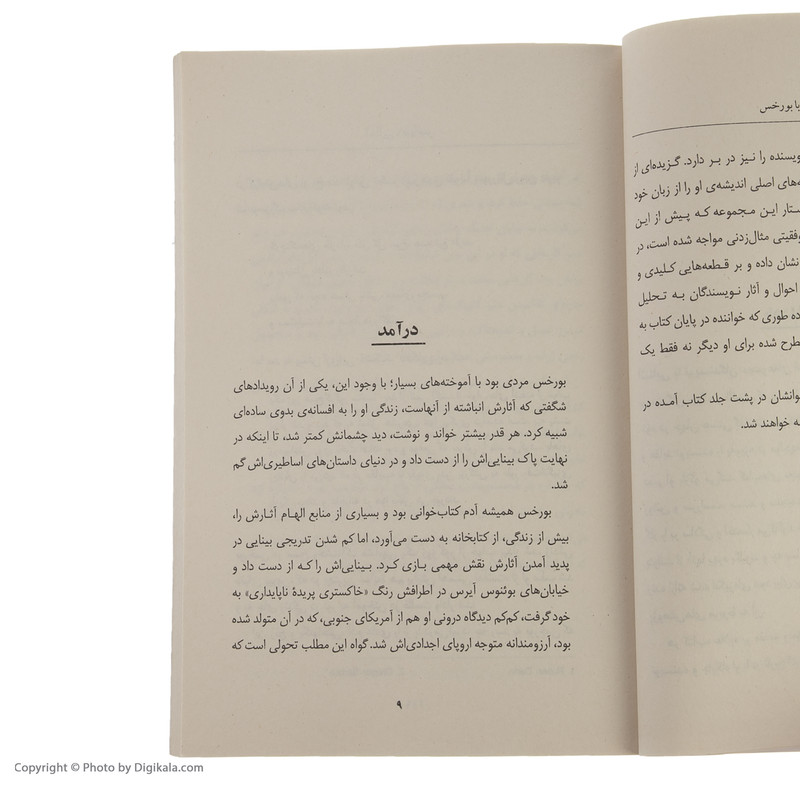 با بورخس
ویسنده را نیز در بر دارد. گزیده‌ای از
ه‌های اصلی اندیشه‌ی او را از زبان خود
ستار این مجموعه که پیش از این
وفقیتی مثال‌زدنی مواجه شده است، در
نشان داده و بر قطعه‌هایی کلیدی و
احوال و آثار نویسندگان به تحلیل
ده طوری که خواننده در پایان کتاب به
طرح شده برای او دیگر نه فقط یک
وانشان در پشت جلد کتاب آمده در
ه خواهند شد.
درآمد
بورخس مردی بود با آموخته‌های بسیار؛ با وجود این، یکی از آن رویدادهای
شگفتی که آثارش انباشته از آنهاست، زندگی او را به افسانه‌ی بدوی ساده‌ای
شبیه کرد. هر قدر بیشتر خواند و نوشت، دید چشمانش کمتر شد، تا اینکه در
نهایت پاک بینایی‌اش را از دست داد و در دنیای داستان‌های اساطیری‌اش گم
شد.
بورخس همیشه آدم کتاب‌خوانی بود و بسیاری از منابع الهام آثارش را،
بیش از زندگی، از کتابخانه به دست می‌آورد، اما کم شدن تدریجی بینایی در
پدید آمدن آثارش نقش مهمی بازی کرد. بینایی‌اش را که از دست داد و
خیابان‌های بوئنوس آیرس در اطرافش رنگ «خاکستری پریدهٔ ناپایداری» به
خود گرفت، کم‌کم دیدگاه درونی او هم از آمریکای جنوبی، که در آن متولد شده
بود، آرزومندانه متوجه اروپای اجدادی‌اش شد. گواه این مطلب تحولی است که
۹
Copyright © Photo by Digikala.com